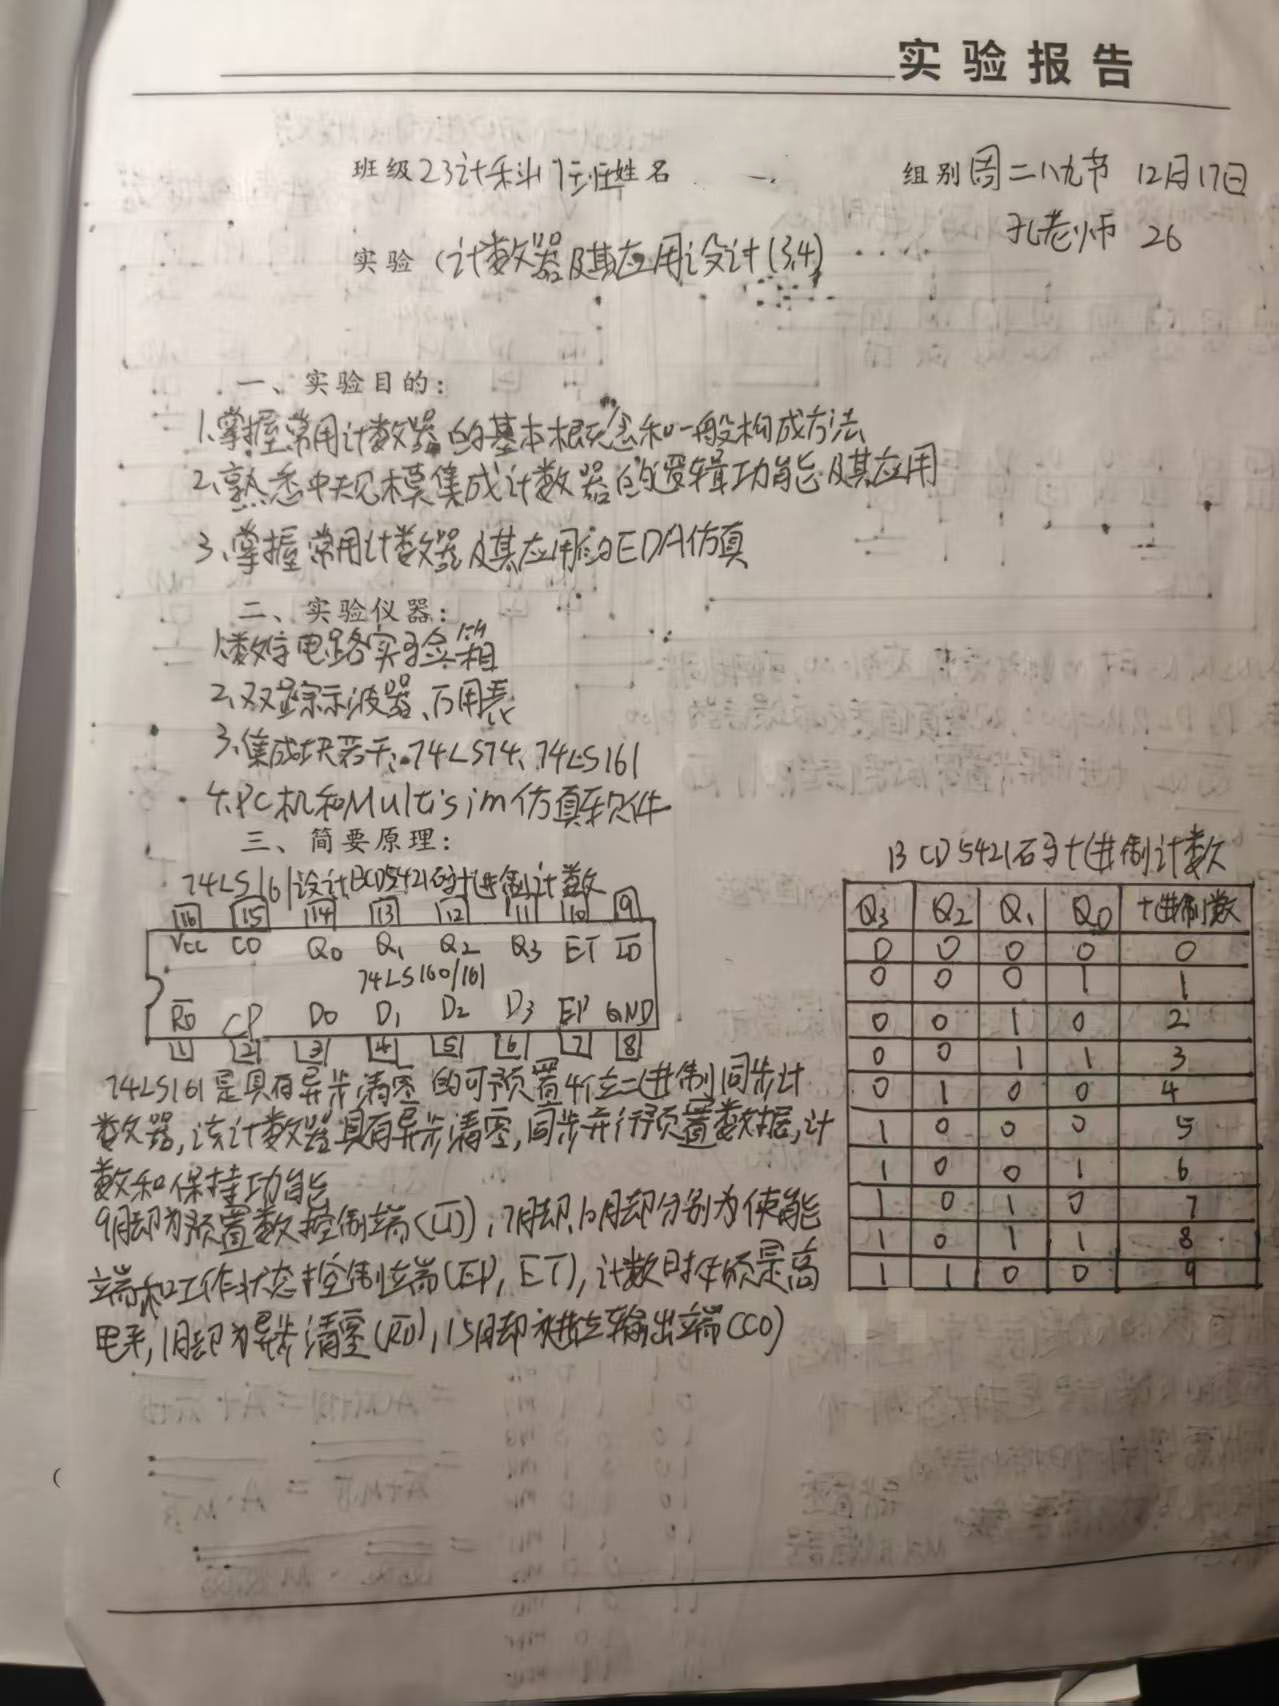 实验报告
班级23计科1班姓名 组别周二八九节 12月17日
孔老师 26
实验 (计数器及其应用设计(3,4)
一、实验目的:
1.掌握常用计数器的基本概念和一般构成方法
2.熟悉中规模集成计数器的逻辑功能及其应用
3.掌握常用计数器及其应用的EDA仿真
二、实验仪器:
1.数字电路实验箱
2.双踪示波器、万用表
3.集成块若干:74LS74、74LS161
4.PC机和Multisim仿真软件
三、简要原理:
74LS161设计BCD5421码十进制计数
16 15 14 13 12 11 10 9
Vcc CO Q0 Q1 Q2 Q3 ET LD
74LS160/161
RD CP D0 D1 D2 D3 EP GND
1 2 3 4 5 6 7 8
74LS161是具有异步清零的可预置4位二进制同步计
数器,该计数器具有异步清零,同步并行预置数据,计
数和保持功能
9脚为预置数控制端(LD),7脚,10脚分别为使能
端和工作状态控制端(EP,ET),计数时必须是高
电平,1脚为异步清零(RD),15脚为进位输出端(CO)
BCD5421码十进制计数
Q3 Q2 Q1 Q0 十进制数
0 0 0 0 0
0 0 0 1 1
0 0 1 0 2
0 0 1 1 3
0 1 0 0 4
1 0 0 0 5
1 0 0 1 6
1 0 1 0 7
1 0 1 1 8
1 1 0 0 9